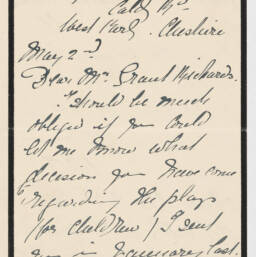 Caldy Rd
West Kirby. Cheshire
May 2nd
Dear Mr. Grant Richards.
I should be much
obliged if you could
let me know what
decision you have come
regarding the plays
(for children) I sent
you in January last.